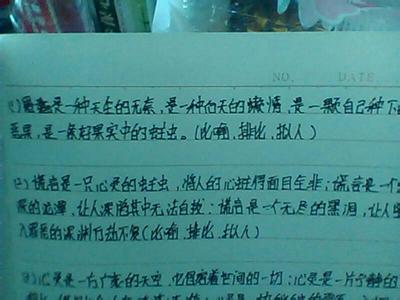 NO. DATE
是一种天生的无奈,是一种后天的懒惰,是一颗自己种下的
恶果,是一条好果实中的蛀虫。(比喻,排比,拟人)
(2)谎言是一只心灵的蛀虫,将人的心蛀得面目全非;谎言是一个
深的泥潭,让人深陷其中无法自拔;谎言是一个无尽的黑洞,让人
入罪恶的深渊万劫不复(比喻,排比,拟人)
(3)心灵是一方广袤的天空,它包容着世间的一切;心灵是一片宁静的